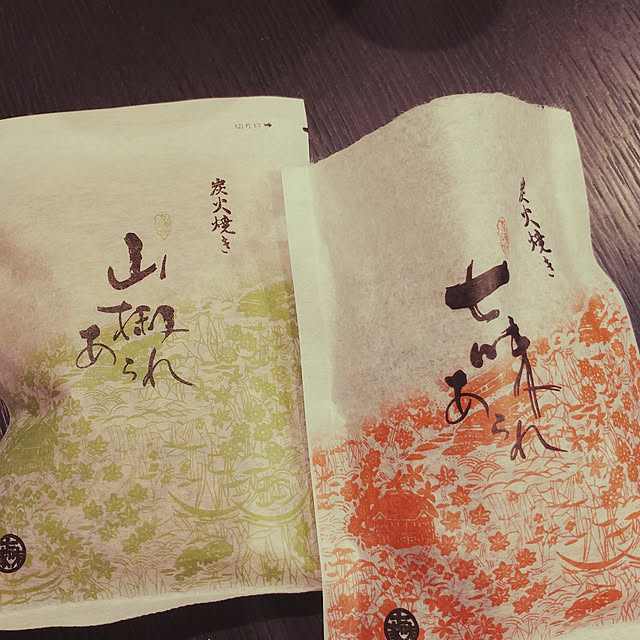 切り口➡
炭火焼き
山椒
あられ
炭火焼き
七味
あられ